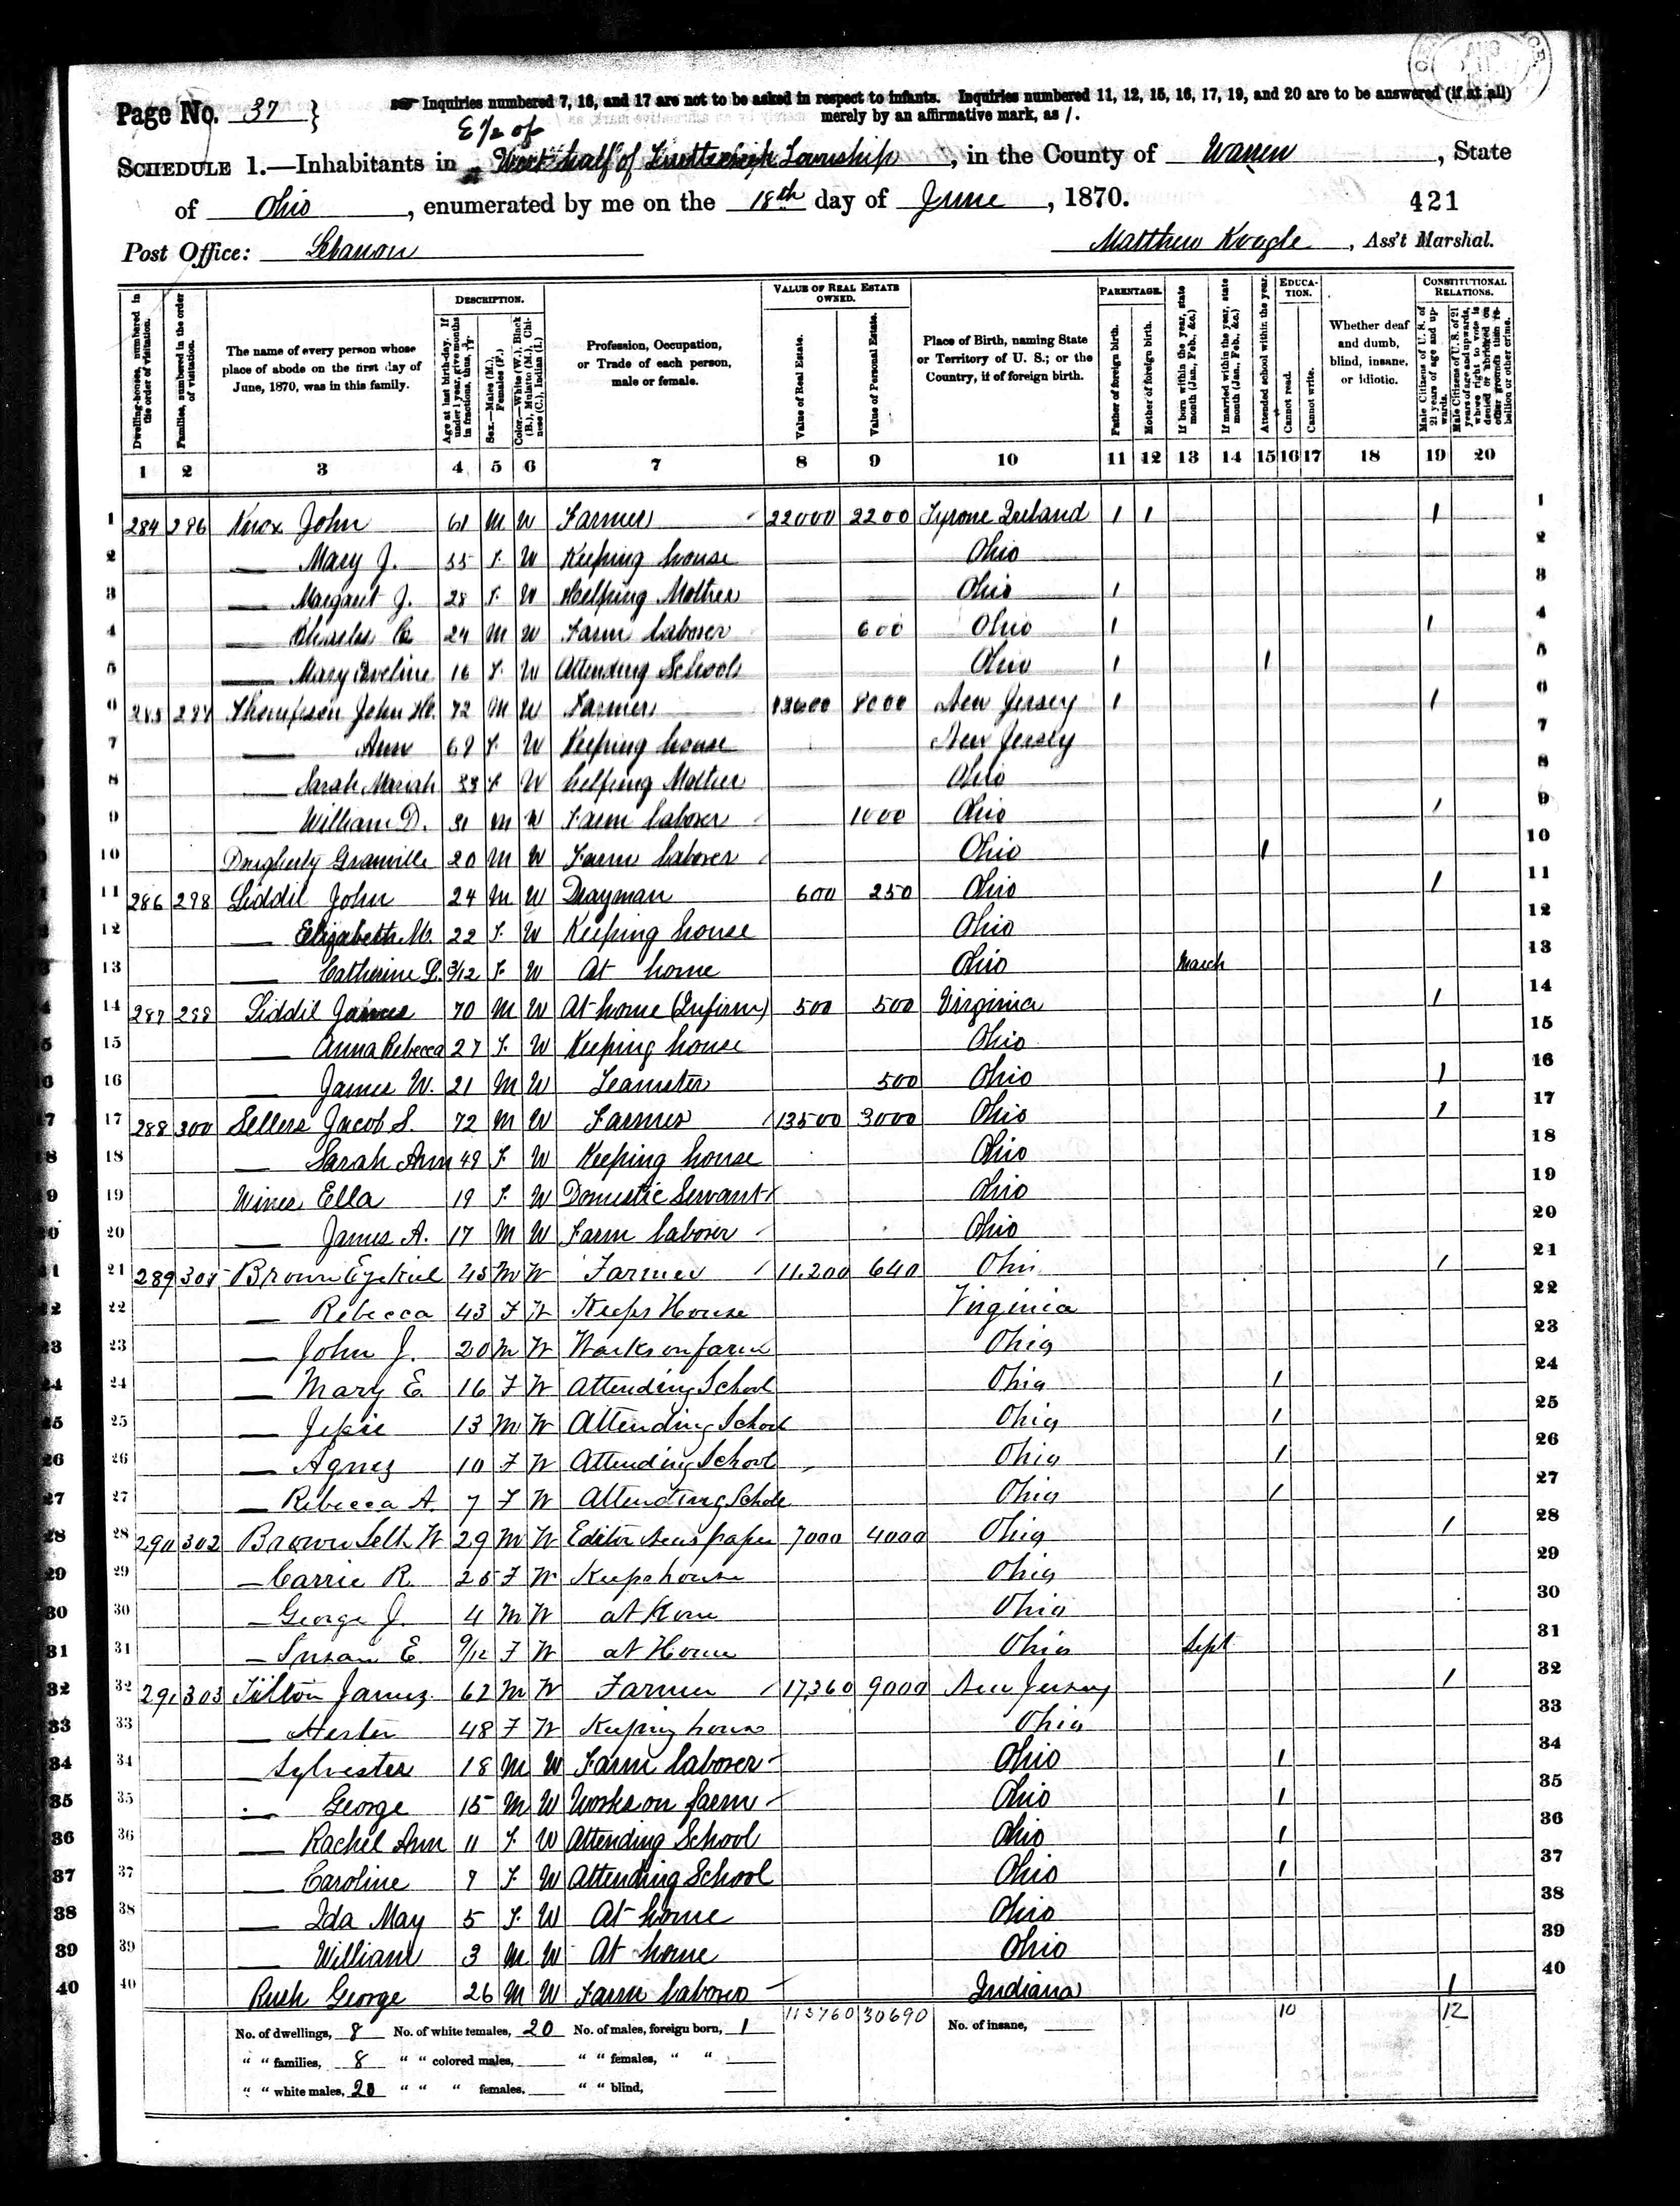 Page No. 37 }
Inquiries numbered 7, 16, and 17 are not to be asked in respect to infants. Inquiries numbered 11, 12, 15, 16, 17, 19, and 20 are to be answered (if at all)
merely by an affirmative mark, as /.
E 1/2 of
SCHEDULE 1.—Inhabitants in West half of Township, in the County of Warren, State
of Ohio, enumerated by me on the 18th day of June, 1870. 421
Post Office: Lebanon Matthew Koogle, Ass't Marshal.
Dwelling-houses, numbered in the order of visitation.
Families, numbered in the order of visitation.
The name of every person whose place of abode on the first day of June, 1870, was in this family.
DESCRIPTION.
Age at last birth-day. If under 1 year, give months in fractions, thus,
Sex.—Males (M.), Females (F.)
Color.—White (W.), Black (B.), Mulatto (M.), Chinese (C.), Indian (I.)
Profession, Occupation, or Trade of each person, male or female.
VALUE OF REAL ESTATE OWNED.
Value of Real Estate.
Value of Personal Estate.
Place of Birth, naming State or Territory of U. S.; or the Country, if of foreign birth.
PARENTAGE.
Father of foreign birth.
Mother of foreign birth.
If born within the year, state month (Jan., Feb., &c.)
If married within the year, state month (Jan., Feb., &c.)
Attended school within the year.
EDUCATION.
Cannot read.
Cannot write.
Whether deaf and dumb, blind, insane, or idiotic.
CONSTITUTIONAL RELATIONS.
Male Citizens of U. S. of 21 years of age and upwards.
Male Citizens of U. S. of 21 years of age and upwards, whose right to vote is denied or abridged on other grounds than rebellion or other crime.
1 2 3 4 5 6 7 8 9 10 11 12 13 14 15 16 17 18 19 20
1 284 296 Knox John 61 M W Farmer 22000 2200 Tyrone Ireland 1 1 1 1
2 — Mary J. 55 F W Keeping house Ohio 2
3 — Margaret J. 28 F W Helping Mother Ohio 1 3
4 — Charles C. 24 M W Farm laborer 600 Ohio 1 1 4
5 — Mary Eveline 16 F W Attending School Ohio 1 1 5
6 285 297 Thompson John H. 72 M W Farmer 8000 New Jersey 1 1 6
7 — Ann 68 F W Keeping house New Jersey 7
8 — Sarah Mariah 33 F W helping Mother Ohio 8
9 — William D. 31 M W Farm laborer 1000 Ohio 1 9
10 Dougherty Granville 20 M W Farm laborer Ohio 1 10
11 286 298 Liddil John 24 M W Drayman 600 250 Ohio 1 11
12 — Elizabeth M. 22 F W Keeping house Ohio 12
13 — Catherine L. 3/12 F W At home Ohio March 13
14 287 299 Liddil James 70 M W At home (Infirm) 500 500 Virginia 1 14
15 — Anna Rebecca 27 F W Keeping house Ohio 15
16 — James W. 21 M W Teamster 500 Ohio 1 16
17 288 300 Sellers Jacob S. 72 M W Farmer 13500 3000 Ohio 1 17
18 — Sarah Ann 49 F W Keeping house Ohio 18
19 Wines Ella 19 F W Domestic Servant Ohio 19
20 — James A. 17 M W Farm laborer Ohio 20
21 289 301 Brown Ezekiel 45 M W Farmer 11,200 640 Ohio 1 21
22 — Rebecca 43 F W Keeps House Virginia 22
23 — John J. 20 M W Works on farm Ohio 23
24 — Mary E. 16 F W Attending School Ohio 1 24
25 — Jessie 13 M W Attending School Ohio 1 25
26 — Agnes 10 F W Attending School Ohio 1 26
27 — Rebecca A. 7 F W Attending Schole Ohio 1 27
28 290 302 Brown Seth W 29 M W Editor News paper 7000 4000 Ohio 1 28
29 — Carrie R. 25 F W Keeps house Ohio 29
30 — George J. 4 M W at Home Ohio 30
31 — Susan E. 9/12 F W at Home Ohio Sept 31
32 291 303 Tilton James 62 M W Farmer 17,360 9000 New Jersey 1 32
33 — Hester 48 F W Keeping house Ohio 33
34 — Sylvester 18 M W Farm laborer Ohio 1 34
35 — George 15 M W Works on farm Ohio 1 35
36 — Rachel Ann 11 F W Attending School Ohio 1 36
37 — Caroline 9 F W Attending School Ohio 1 37
38 — Ida May 5 F W At home Ohio 38
39 — William 3 M W At home Ohio 39
40 Rush George 26 M W Farm laborer Indiana 1 40
No. of dwellings, 8 No. of white females, 20 No. of males, foreign born, 1 30690 No. of insane, 10 12
" " families, 8 " " colored males, " " females, " "
" " white males, 20 " " " females, " " blind,